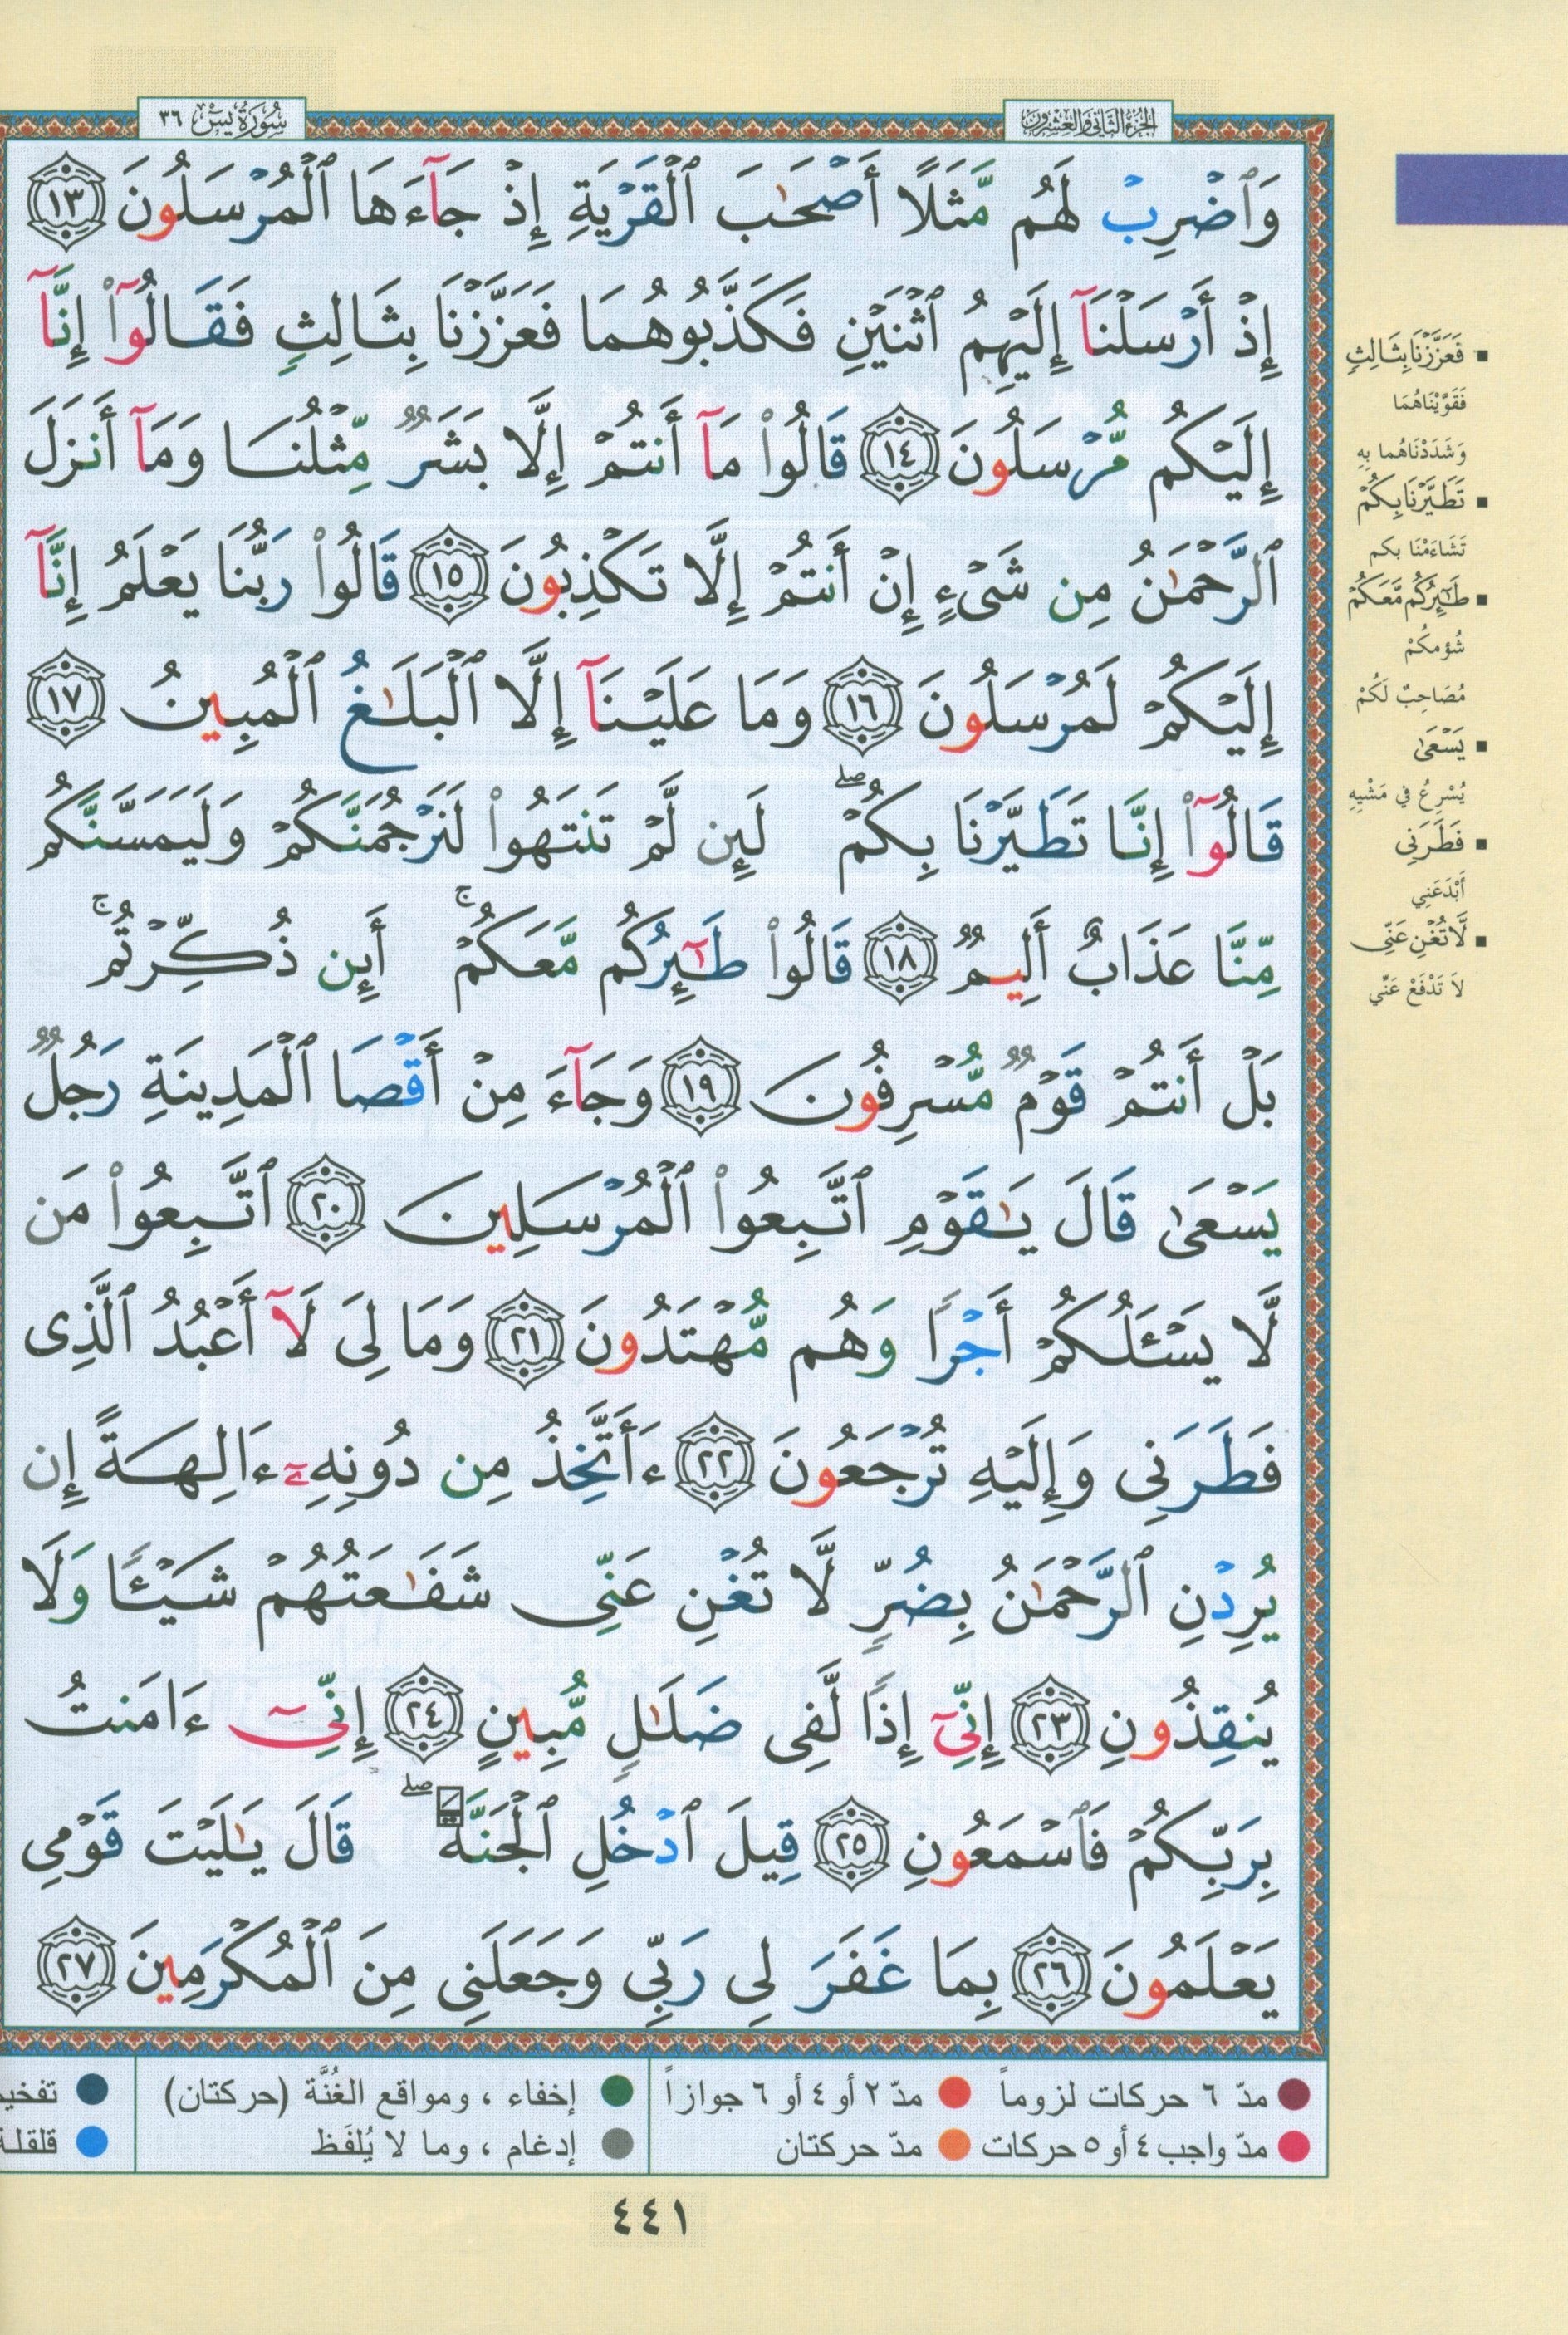 الجزء الثاني والعشرون
سورة يس ٣٦
وَٱضْرِبْ لَهُم مَّثَلًا أَصْحَٰبَ ٱلْقَرْيَةِ إِذْ جَآءَهَا ٱلْمُرْسَلُونَ ١٣
إِذْ أَرْسَلْنَآ إِلَيْهِمُ ٱثْنَيْنِ فَكَذَّبُوهُمَا فَعَزَّزْنَا بِثَالِثٍ فَقَالُوٓا۟ إِنَّآ
إِلَيْكُم مُّرْسَلُونَ ١٤ قَالُوا۟ مَآ أَنتُمْ إِلَّا بَشَرٌ مِّثْلُنَا وَمَآ أَنزَلَ
ٱلرَّحْمَٰنُ مِن شَىْءٍ إِنْ أَنتُمْ إِلَّا تَكْذِبُونَ ١٥ قَالُوا۟ رَبُّنَا يَعْلَمُ إِنَّآ
إِلَيْكُمْ لَمُرْسَلُونَ ١٦ وَمَا عَلَيْنَآ إِلَّا ٱلْبَلَٰغُ ٱلْمُبِينُ ١٧
قَالُوٓا۟ إِنَّا تَطَيَّرْنَا بِكُمْ ۖ لَئِن لَّمْ تَنتَهُوا۟ لَنَرْجُمَنَّكُمْ وَلَيَمَسَّنَّكُم
مِّنَّا عَذَابٌ أَلِيمٌ ١٨ قَالُوا۟ طَٰٓئِرُكُم مَّعَكُمْ ۚ أَئِن ذُكِّرْتُم ۚ
بَلْ أَنتُمْ قَوْمٌ مُّسْرِفُونَ ١٩ وَجَآءَ مِنْ أَقْصَا ٱلْمَدِينَةِ رَجُلٌ
يَسْعَىٰ قَالَ يَٰقَوْمِ ٱتَّبِعُوا۟ ٱلْمُرْسَلِينَ ٢٠ ٱتَّبِعُوا۟ مَن
لَّا يَسْـَٔلُكُمْ أَجْرًا وَهُم مُّهْتَدُونَ ٢١ وَمَا لِىَ لَآ أَعْبُدُ ٱلَّذِى
فَطَرَنِى وَإِلَيْهِ تُرْجَعُونَ ٢٢ ءَأَتَّخِذُ مِن دُونِهِۦٓ ءَالِهَةً إِن
يُرِدْنِ ٱلرَّحْمَٰنُ بِضُرٍّ لَّا تُغْنِ عَنِّى شَفَٰعَتُهُمْ شَيْـًٔا وَلَا
يُنقِذُونِ ٢٣ إِنِّىٓ إِذًا لَّفِى ضَلَٰلٍ مُّبِينٍ ٢٤ إِنِّىٓ ءَامَنتُ
بِرَبِّكُمْ فَٱسْمَعُونِ ٢٥ قِيلَ ٱدْخُلِ ٱلْجَنَّةَ ۖ قَالَ يَٰلَيْتَ قَوْمِى
يَعْلَمُونَ ٢٦ بِمَا غَفَرَ لِى رَبِّى وَجَعَلَنِى مِنَ ٱلْمُكْرَمِينَ ٢٧
▪ فَعَزَّزْنَا بِثَالِثٍ
فَقَوَّيْنَاهُمَا
وَشَدَدْنَاهُما بِهِ
▪ تَطَيَّرْنَا بِكُمْ
تَشَاءَمْنَا بكم
▪ طَٰٓئِرُكُم مَّعَكُمْ
شُؤمكُمْ
مُصَاحِبٌ لَكُمْ
▪ يَسْعَىٰ
يُسْرِعُ في مَشْيِهِ
▪ فَطَرَنِى
أَبْدَعَنِي
▪ لَّا تُغْنِ عَنِّى
لاَ تَدْفَعْ عَنِّي
مدّ ٦ حركات لزوماً ● مدّ ٢ أو ٤ أو ٦ جوازاً
مدّ واجب ٤ أو ٥ حركات ● مدّ حركتان
إخفاء ، ومواقع الغُنَّة (حركتان)
إدغام ، وما لا يُلفَظ
تفخيم
قلقلة
٤٤١